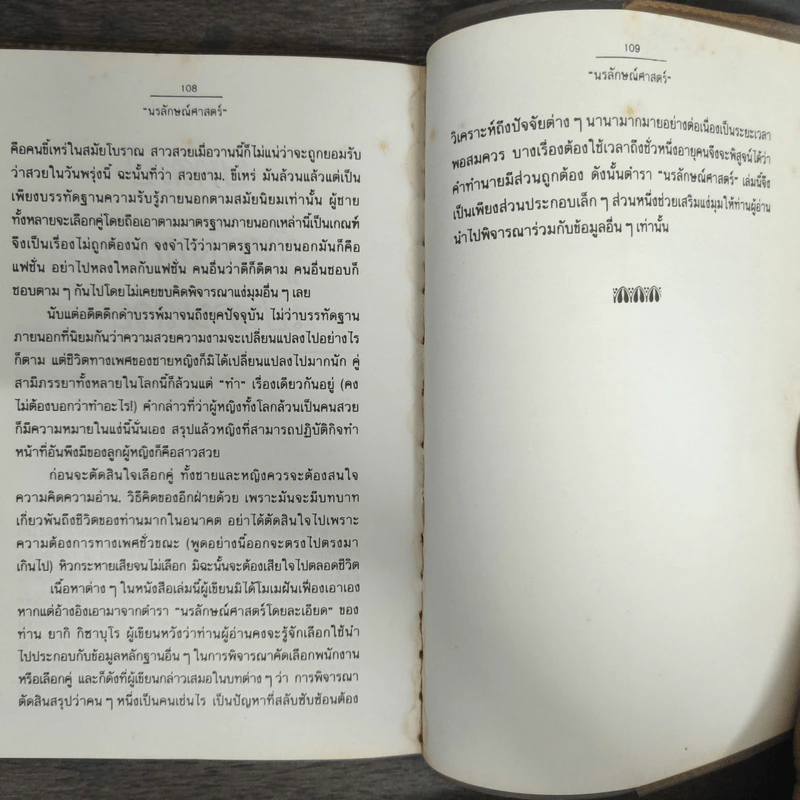 108
"นรลักษณ์ศาสตร์"
คือคนขี้เหร่ในสมัยโบราณ สาวสวยเมื่อวานนี้ก็ไม่แน่ว่าจะถูกยอมรับ
ว่าสวยในวันพรุ่งนี้ ฉะนั้นที่ว่า สวยงาม. ขี้เหร่ มันล้วนแล้วแต่เป็น
เพียงบรรทัดฐานความรับรู้ภายนอกตามสมัยนิยมเท่านั้น ผู้ชาย
ทั้งหลายจะเลือกคู่โดยถือเอาตามมาตรฐานภายนอกเหล่านี้เป็นเกณฑ์
จึงเป็นเรื่องไม่ถูกต้องนัก จงจำไว้ว่ามาตรฐานภายนอกมันก็คือ
แฟชั่น อย่าไปหลงใหลกับแฟชั่น คนอื่นว่าดีก็ดีตาม คนอื่นชอบก็
ชอบตาม ๆ กันไปโดยไม่เคยขบคิดพิจารณาแง่มุมอื่น ๆ เลย
นับแต่อดีตดึกดำบรรพ์มาจนถึงยุคปัจจุบัน ไม่ว่าบรรทัดฐาน
ภายนอกที่นิยมกันว่าความสวยความงามจะเปลี่ยนแปลงไปอย่างไร
ก็ตาม แต่ชีวิตทางเพศของชายหญิงก็มิได้เปลี่ยนแปลงไปมากนัก คู่
สามีภรรยาทั้งหลายในโลกนี้ก็ล้วนแต่ "ทำ" เรื่องเดียวกันอยู่ (คง
ไม่ต้องบอกว่าทำอะไร!) คำกล่าวที่ว่าผู้หญิงทั้งโลกล้วนเป็นคนสวย
ก็มีความหมายในแง่นี้นั่นเอง สรุปแล้วหญิงที่สามารถปฏิบัติกิจทำ
หน้าที่อันพึงมีของลูกผู้หญิงก็คือสาวสวย
ก่อนจะตัดสินใจเลือกคู่ ทั้งชายและหญิงควรจะต้องสนใจ
ความคิดความอ่าน. วิธีคิดของอีกฝ่ายด้วย เพราะมันจะมีบทบาท
เกี่ยวพันถึงชีวิตของท่านมากในอนาคต อย่าได้ตัดสินใจไปเพราะ
ความต้องการทางเพศชั่วขณะ (พูดอย่างนี้ออกจะตรงไปตรงมา
เกินไป) หิวกระหายเสียจนไม่เลือก มิฉะนั้นจะต้องเสียใจไปตลอดชีวิต
เนื้อหาต่าง ๆ ในหนังสือเล่มนี้ผู้เขียนมิได้โมเมฝันเฟื่องเอาเอง
หากแต่อ้างอิงเอามาจากตำรา "นรลักษณ์ศาสตร์โดยละเอียด" ของ
ท่าน ยากิ กิซาบุโร ผู้เขียนหวังว่าท่านผู้อ่านคงจะรู้จักเลือกใช้นำ
ไปประกอบกับข้อมูลหลักฐานอื่น ๆ ในการพิจารณาคัดเลือกพนักงาน
หรือเลือกคู่ และก็ดังที่ผู้เขียนกล่าวเสมอในบทต่าง ๆ ว่า การพิจารณา
ตัดสินสรุปว่าคน ๆ หนึ่งเป็นคนเช่นไร เป็นปัญหาที่สลับซับซ้อนต้อง
109
"นรลักษณ์ศาสตร์"
วิเคราะห์ถึงปัจจัยต่าง ๆ นานามากมายอย่างต่อเนื่องเป็นระยะเวลา
พอสมควร บางเรื่องต้องใช้เวลาถึงชั่วหนึ่งอายุคนจึงจะพิสูจน์ได้ว่า
คำทำนายมีส่วนถูกต้อง ดังนั้นตำรา "นรลักษณ์ศาสตร์" เล่มนี้จึง
เป็นเพียงส่วนประกอบเล็ก ๆ ส่วนหนึ่งช่วยเสริมแง่มุมให้ท่านผู้อ่าน
นำไปพิจารณาร่วมกับข้อมูลอื่น ๆ เท่านั้น